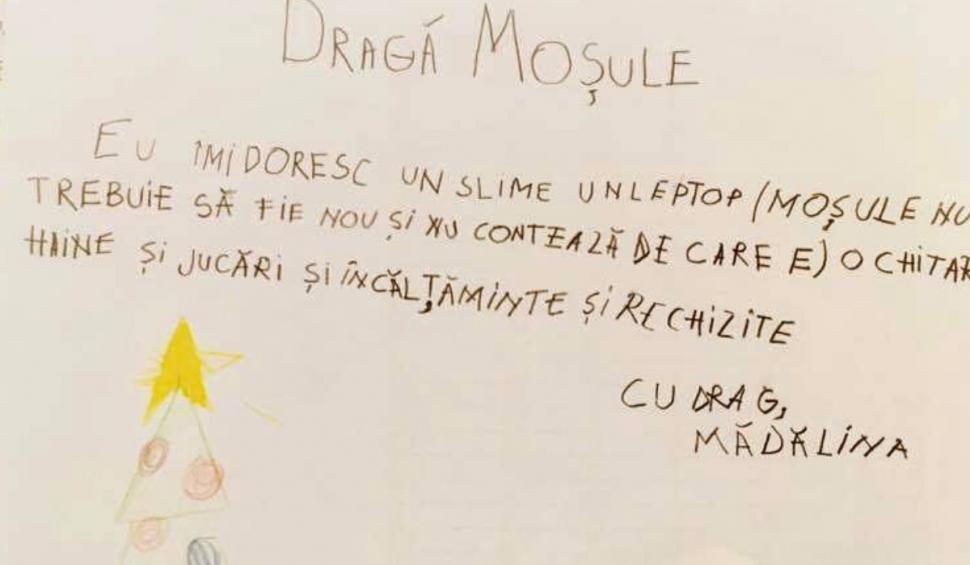 DRAGĂ MOȘULE
EU ÎMI DORESC UN SLIME UN LEPTOP (MOȘULE NU
TREBUIE SĂ FIE NOU ȘI NU CONTEAZĂ DE CARE E) O CHITAR
HAINE ȘI JUCĂRI ȘI ÎNCĂLȚĂMINTE ȘI RECHIZITE
CU DRAG,
MĂDĂLINA